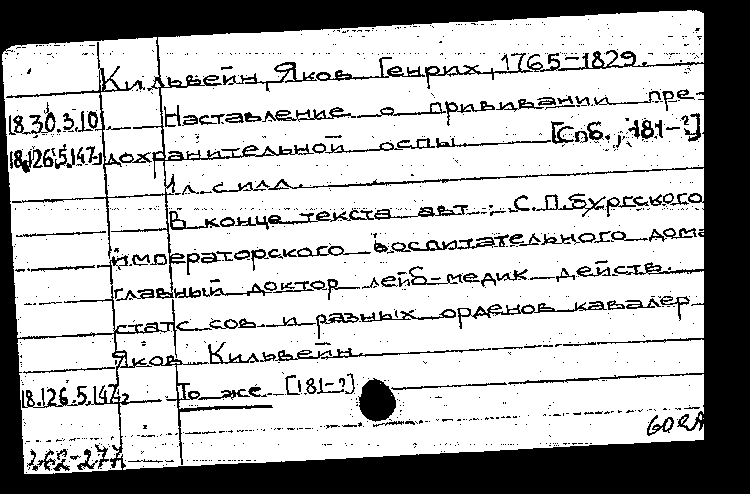 Кильвейн, Яков Генрих, 1765-1829.
18.30.3.10 Наставление о прививании пре-
18.126.5.147-1 дохранительной оспы. [Спб., 181-?]
1 л. с илл.
В конце текста авт.: С.П.бургского
императорского воспитательного дома
главный доктор лейб-медик действ.
статс сов. и разных орденов кавалер
Яков Кильвейн.
18.126.5.147-2 То же. [181-?]
262-277